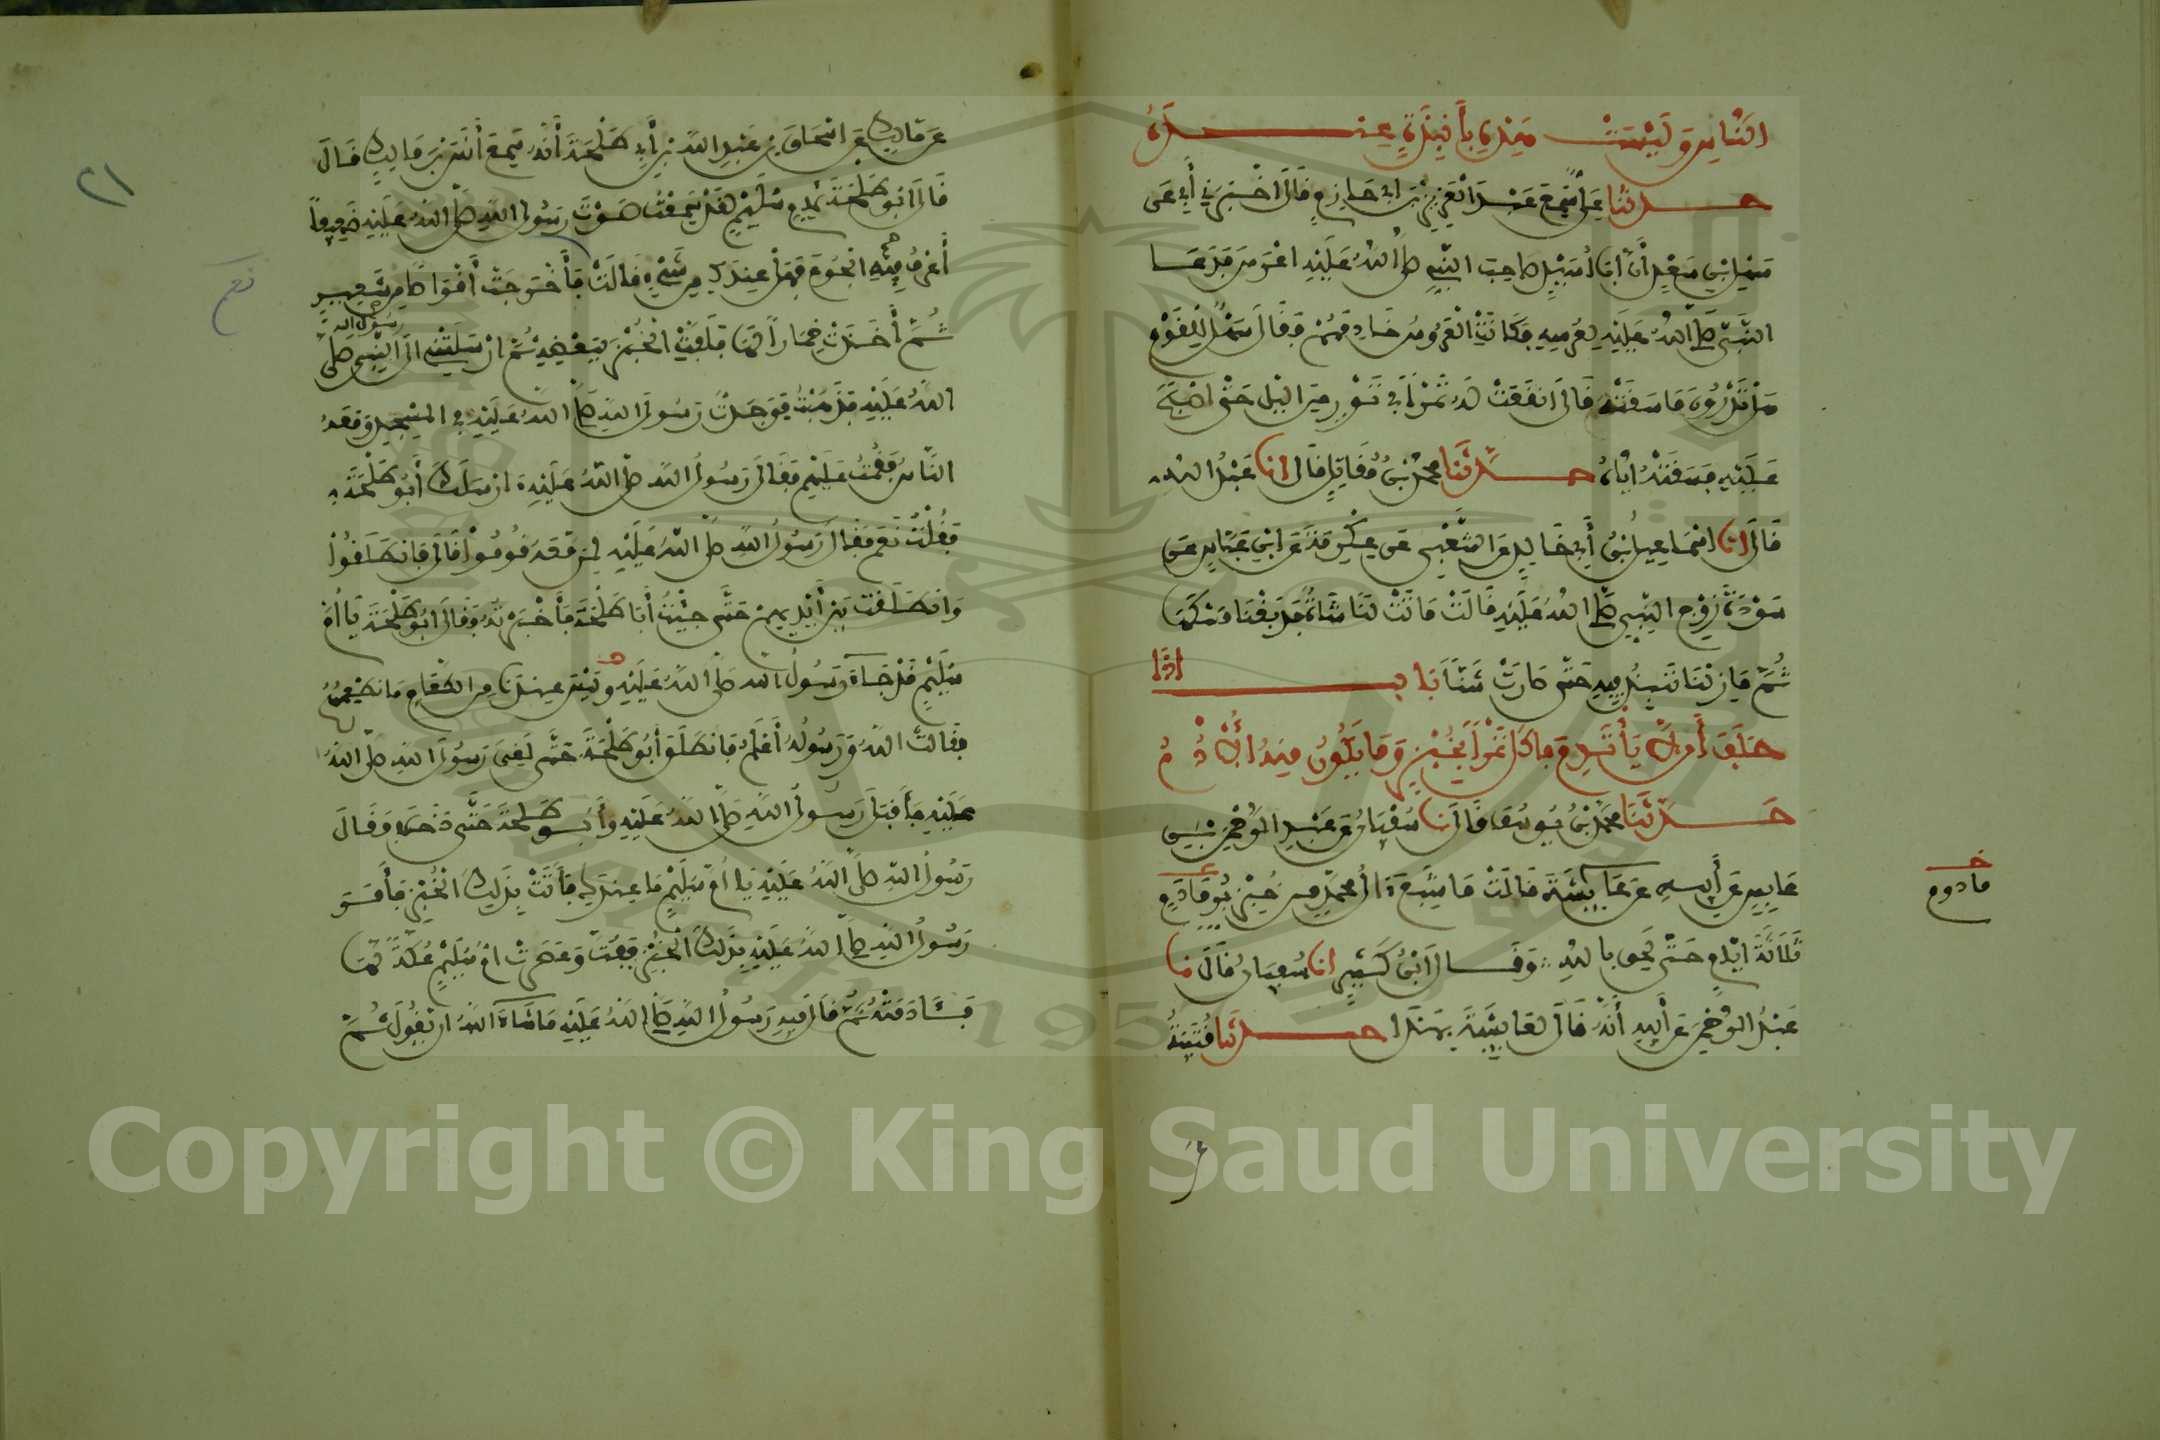 النَّاسِ وَلَيْسَتْ هَذِهِ بِأَنْبِذَةٍ عِنْدَهُ
حدثنا عَلِي سَمِعَ عَبْدَ الْعَزِيزِ بْنَ ابي حَازِمٍ قَالَ اخْبَرَنِي أَبِي عَن
سَهْلِ ابْنِ سَعْدٍ أَنَّ ابَا أُسَيْدٍ صَاحِبَ النَّبِيِّ صلى اللهُ عَلَيْهِ اعْرَسَ فَدَعَا
النَّبِيَّ صَلَّى اللهُ عَلَيْهِ لِعُرْسِهِ فَكَانَتْ الْعَرُوسُ خَادِمَهُمْ فَقَالَ سَهْلٌ لِلْقَوْمِ
هَلْ تَدْرُونَ مَا سَقَتْهُ قَالَ انْقَعَتْ لَهُ تَمْرًا فِي تَوْرٍ مِنَ اليْلِ حَتَّى اصْبَحَ
عَلَيْهِ فَسَقَتْهُ ايَّاهُ حدثنا محمد بْنُ مُقَاتِلٍ قَالَ انا عَبْدُ اللهِ
قَالَ انا اسْمَاعِيلُ بْنُ أَبِي خَالِدٍ عَن الشَّعْبِي عَن عِكْرِمَةَ عَن ابْنِ عَبَّاسٍ عَن
سَوْدَةَ زَوْجِ النَّبِيِّ صَلَّى اللهُ عَلَيْهِ قَالَتْ مَاتَتْ لَنَا شَاةٌ فَدَبَغْنَا مَسْكَهَا
ثُمَّ مَا زِلْنَا نَنْبِذُ فِيهِ حَتَّى صَارَتْ شَنًّا بَاب اذَا
حَلَفَ أَن لَّا يَأْتَدِمَ فَاكَلَ تَمْرًا بِخُبْزٍ وَمَا يَكُونُ مِنهُ الْأُدْمُ
حَدَّثَنَا محمد بْنُ يُوسُفَ قَالَ نا سُفْيَانُ عَن عَبْدِ الرَّحْمَنِ بْنِ
عَابِسٍ عَن أَبِيهِ عَن عَائِشَةَ قَالَتْ مَا شَبِعَ ءَالُ محمدٍ مِن خُبْزِ بُرٍّ مَادَمٍ
ثَلَاثَةَ ايَّامٍ حَتَّى لَحِقَ بِاللهِ وَقَالَ ابْنُ كَثِيرٍ انا سُفْيَانُ قَالَ نا
عَبْدُ الرَّحْمَنِ عَن أَبِيهِ أَنَّهُ قَالَ لِعَائِشَةَ بِهَذَا حدثنا قُتَيْبَةُ
خـ
مادوم
عَن مَالِكٍ عَن اسْحَاقَ بن عَبْدِ اللهِ بْنِ أَبِي طَلْحَةَ أَنَّهُ سَمِعَ أَنَسَ بْنَ مَالِكٍ قَالَ
قَالَ ابُو طَلْحَةَ لِأُمِّ سُلَيْمٍ لَقَدْ سَمِعْتُ صَوْتَ رَسُولِ اللهِ صَلَّى اللهُ عَلَيْهِ ضَعِيفًا
أَعْرِفُ فِيهِ الْجُوعَ فَهَلْ عِنْدَكِ مِن شَيْءٍ فَقَالَتْ فَأَخْرَجَتْ أَقْرَاصًا مِن شَعِيرٍ
نعم
ثُمَّ أَخَذَتْ خِمَارًا لَهَا فَلَفَّتِ الْخُبْزَ بِبَعْضِهِ ثُمَّ ارْسَلَتْنِي الَى النَّبِيِّ صَلَّى
رسول الله
اللهُ عَلَيْهِ فَذَهَبْتُ فَوَجَدْتُ رَسُولَ اللهِ صَلَّى اللهُ عَلَيْهِ فِي الْمَسْجِدِ وَمَعَهُ
النَّاسُ فَقُمْتُ عَلَيْهِمْ فَقَالَ رَسُولُ اللهِ صَلَّى اللهُ عَلَيْهِ ءَارْسَلَكَ أَبُو طَلْحَةَ
فَقُلْتُ نَعَمْ فَقَالَ رَسُولُ اللهِ صَلَّى اللهُ عَلَيْهِ لِمَنْ مَعَهُ قُومُوا قَالَ فَانْطَلَقُوا
وَانْطَلَقْتُ بَيْنَ أَيْدِيهِمْ حَتَّى جِئْتُ أَبَا طَلْحَةَ فَأَخْبَرْتُهُ فَقَالَ ابُو طَلْحَةَ يَا أُمَّ
سُلَيْمٍ قَدْ جَاءَ رَسُولُ اللهِ صَلَّى اللهُ عَلَيْهِ وَلَيْسَ عِنْدَنَا مِن الطَّعَامِ مَا نُطْعِمُهُمْ
فَقَالَتْ اللهُ وَرَسُولُهُ أَعْلَمُ فَانْطَلَقَ أَبُو طَلْحَةَ حَتَّى لَقِيَ رَسُولَ اللهِ صَلَّى اللهُ
عَلَيْهِ فَأَقْبَلَ رَسُولُ اللهِ صَلَّى اللهُ عَلَيْهِ وَأَبُو طَلْحَةَ حَتَّى دَخَلَا فَقَالَ
رَسُولُ اللهِ صَلَّى اللهُ عَلَيْهِ يَا أُمَّ سُلَيْمٍ مَا عِنْدَكِ فَأَتَتْ بِذَلِكَ الْخُبْزِ فَأَمَرَ
رَسُولُ اللهِ صَلَّى اللهُ عَلَيْهِ بِذَلِكَ الْخُبْزِ فَفُتَّ وَعَصَرَتْ امُّ سُلَيْمٍ عُكَّةً لَهَا
فَئَادَمَتْهُ ثُمَّ قَالَ فِيهِ رَسُولُ اللهِ صَلَّى اللهُ عَلَيْهِ مَا شَاءَ اللهُ ان يَقُولَ ثُمَّ
٢١
1957
Copyright © King Saud University